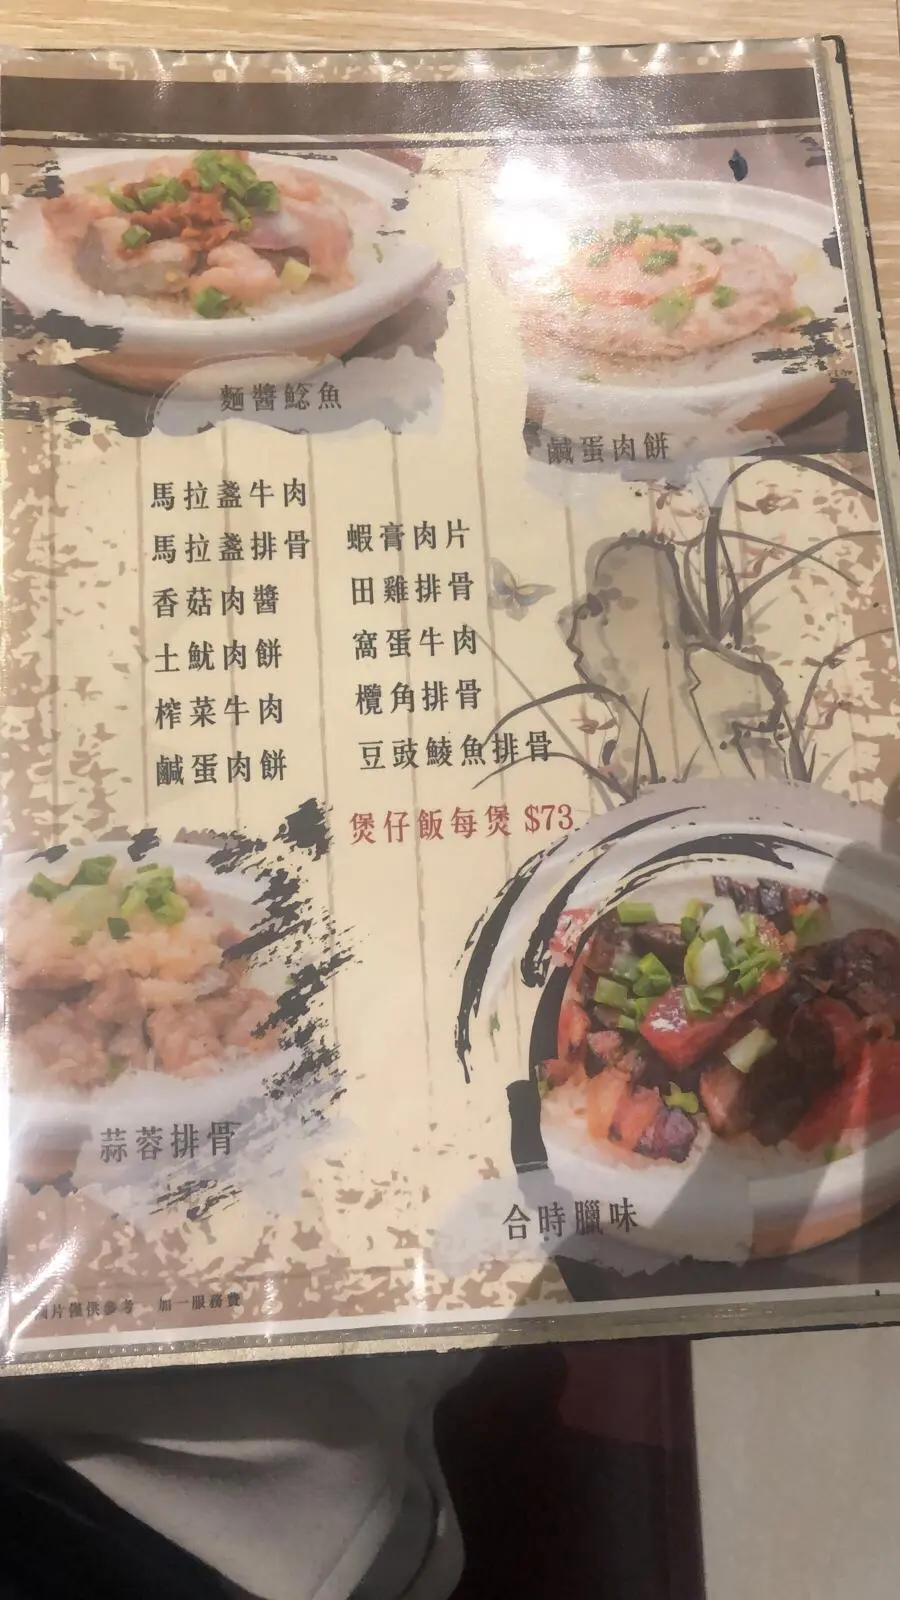 麵醬鯰魚
鹹蛋肉餅
馬拉盞牛肉
馬拉盞排骨
香菇肉醬
土魷肉餅
榨菜牛肉
鹹蛋肉餅
蝦膏肉片
田雞排骨
窩蛋牛肉
欖角排骨
豆豉鯪魚排骨
煲仔飯每煲 $73
蒜蓉排骨
合時臘味
圖片僅供參考 加一服務費